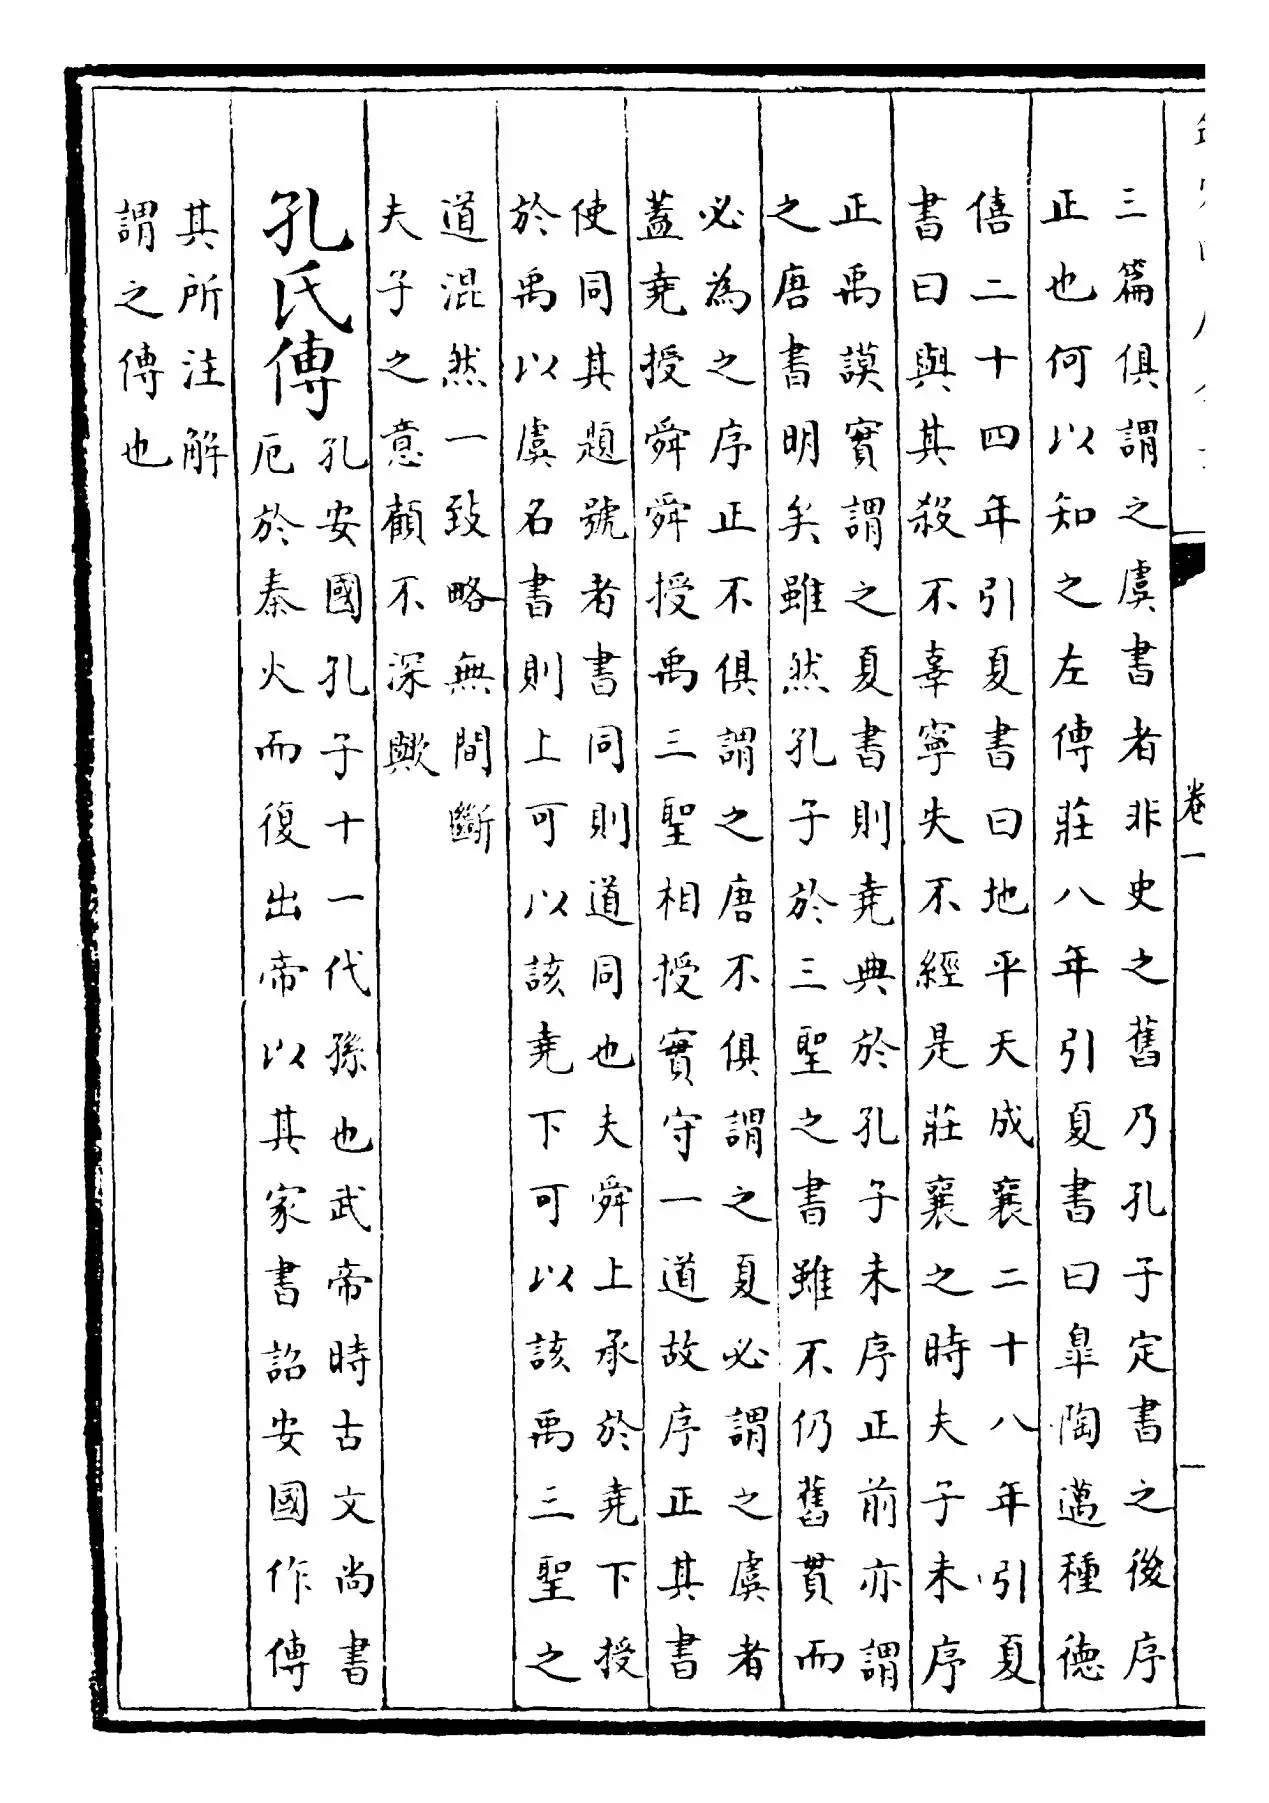 卷一
三篇俱謂之虞書者非史之舊乃孔子定書之後序
正也何以知之左傳莊八年引夏書曰臯陶邁種德
僖二十四年引夏書曰地平天成襄二十八年引夏
書曰與其殺不辜寧失不經是莊襄之時夫子未序
正禹謨實謂之夏書則堯典於孔子未序正前亦謂
之唐書明矣雖然孔子於三聖之書雖不仍舊貫而
必為之序正不俱謂之唐不俱謂之夏必謂之虞者
蓋堯授舜舜授禹三聖相授實守一道故序正其書
使同其題號者書同則道同也夫舜上承於堯下授
於禹以虞名書則上可以該堯下可以該禹三聖之
道混然一致略無間斷
夫子之意顧不深歟
孔氏傳
孔安國孔子十一代孫也武帝時古文尚書
厄於秦火而復出帝以其家書詔安國作傳
其所注解
謂之傳也